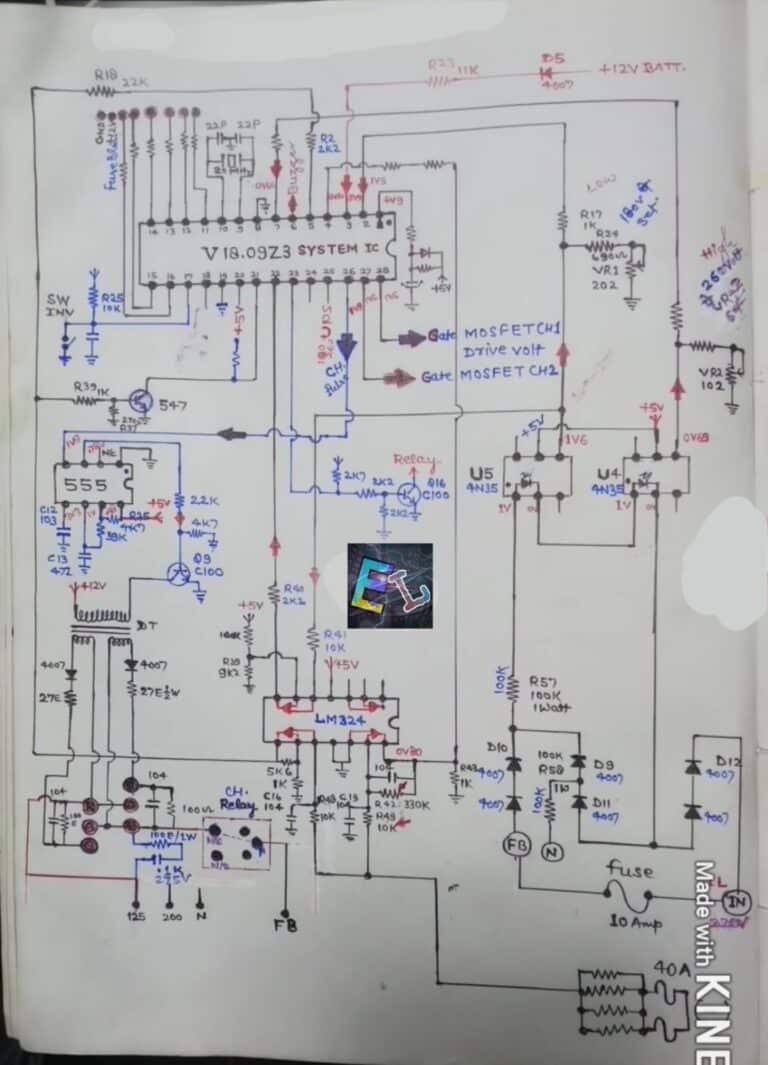 R18
22K
R23 11K
D5
4007
+12V BATT.
GND
22P 22P
R2
2K2
Buzzer
1V5
4V9
LOW
R17
1K
R24
680Ω
VR1
202
High
260volt
14 13 12 11 10 9 8 7 6 5 4 3 2 1
V18.09Z3 SYSTEM IC
15 16 17 18 19 20 21 22 23 24 25 26 27 28
+5V
SW
INV
R25
10K
+5V
CH.
Pulse
Gate MOSFET CH1
Drive volt
Gate MOSFET CH2
VR2
102
R39 1K
547
NE
555
+5V
1V6
+5V
0V69
U5
4N35
U4
4N35
1V
1V
Relay
2K7
2K2
Q16
C100
2K2
C12
103
+5V
R35
4K7
39K
22K
4K7
C13
472
Q9
C100
+12V
DT
EL
+5V
R40
2K2
R41
10K
+5V
R57
100K
1Watt
100K
4007
27E
4007
27E½W
9K2
LM324
0V80
5K6
1K
C14
104
R48
10K
C15
104
104
R42: 330K
R49
10K
R43
1K
D10
4007
4007
100K
R58
1W
100K
D9
4007
D11
4007
D12
4007
4007
104
104
100Ω
CH.
Relay
N/C
N/O
100E/1W
.1K
275V
125 200 N
FB
FB
N
fuse
10 Amp
L
IN
220V
40A
Made with KINE